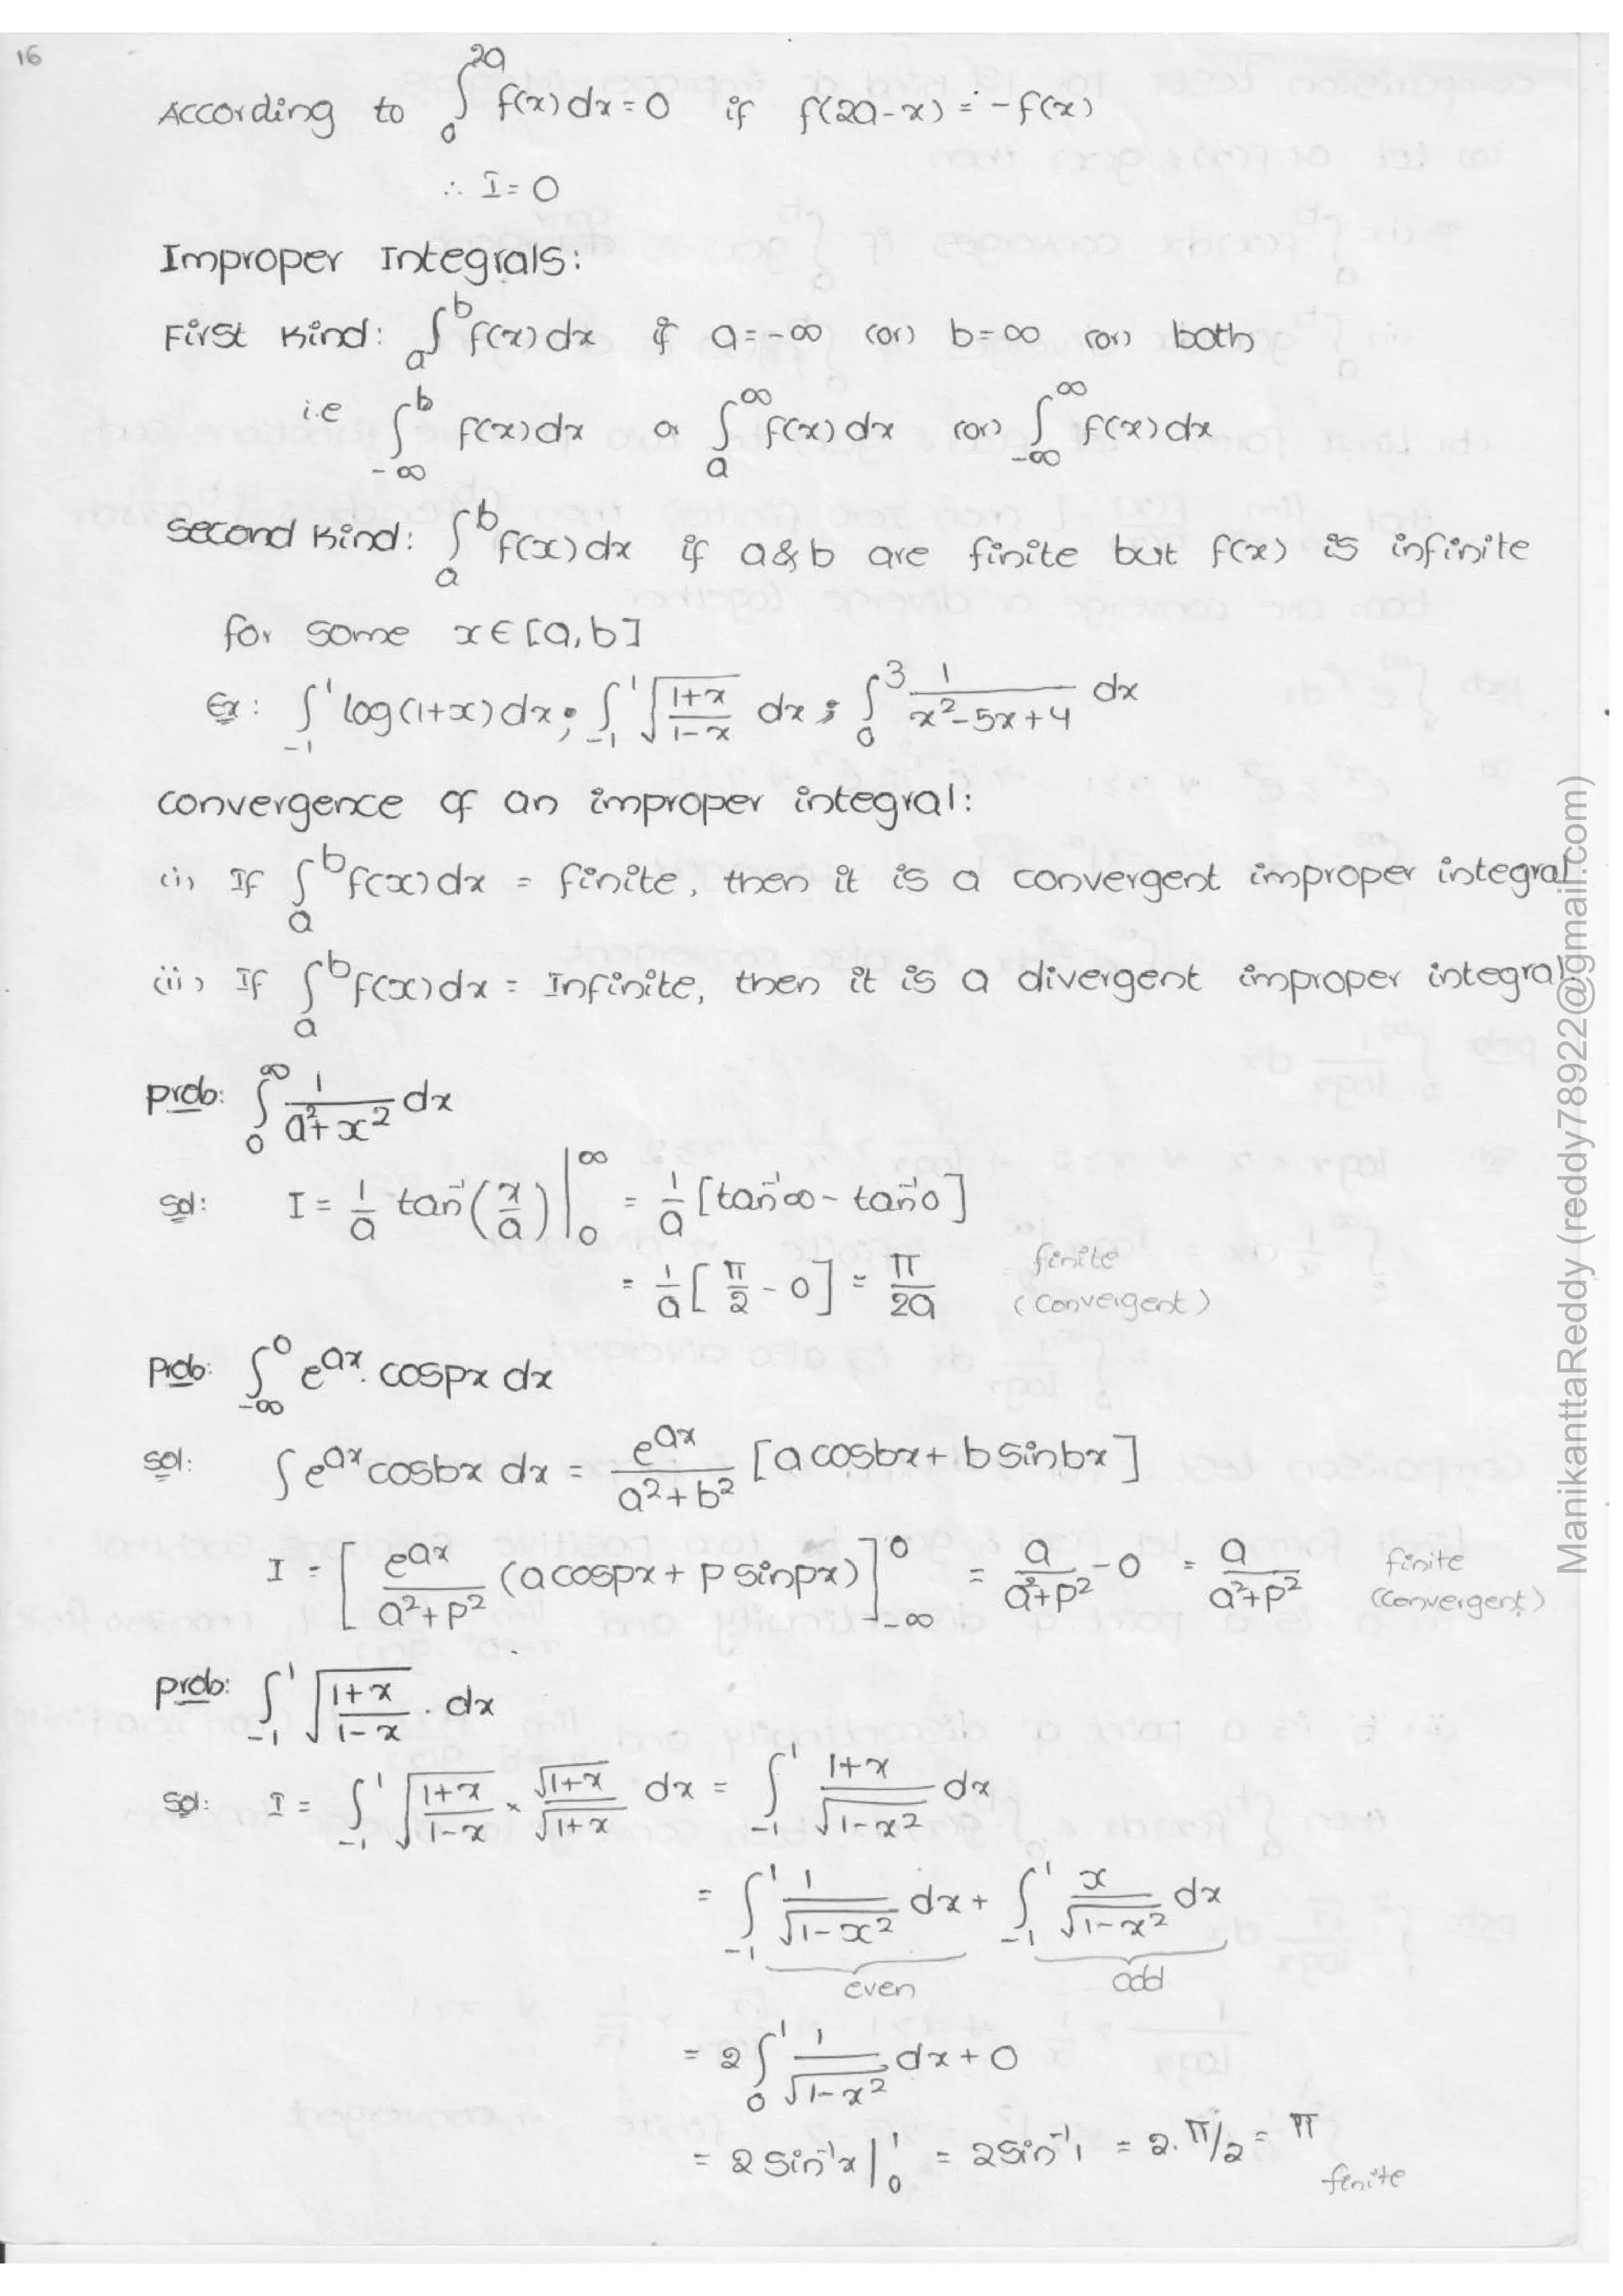 16
According to ∫₀^2a f(x) dx = 0 if f(2a-x) = -f(x)
∴ I = 0
Improper Integrals:
First Kind: ∫ₐ^b f(x) dx if a = -∞ (or) b = ∞ (or) both
i.e ∫_-∞^b f(x) dx or ∫ₐ^∞ f(x) dx (or) ∫_-∞^∞ f(x) dx
Second Kind: ∫ₐ^b f(x) dx if a & b are finite but f(x) is infinite
for some x ∈ [a, b]
Ex: ∫_-1^1 log(1+x) dx ; ∫_-1^1 √((1+x)/(1-x)) dx ; ∫₀^3 1/(x²-5x+4) dx
convergence of an improper integral:
(i) If ∫ₐ^b f(x) dx = finite, then it is a convergent improper integral
(ii) If ∫ₐ^b f(x) dx = Infinite, then it is a divergent improper integral
prob: ∫₀^∞ 1/(a²+x²) dx
sol: I = 1/a tan⁻¹(x/a) |₀^∞ = 1/a [tan⁻¹∞ - tan⁻¹0]
= 1/a [π/2 - 0] = π/2a finite
(Convergent)
Prob: ∫_-∞^0 e^ax. cospx dx
sol: ∫ e^ax cosbx dx = e^ax/(a²+b²) [a cosbx + b sinbx]
I = [e^ax/(a²+p²) (a cospx + p sinpx)]_-∞^0 = a/(a²+p²) - 0 = a/(a²+p²) finite
(Convergent)
prob: ∫_-1^1 √((1+x)/(1-x)) . dx
sol: I = ∫_-1^1 √((1+x)/(1-x)) × √(1+x)/√(1+x) dx = ∫_-1^1 (1+x)/√(1-x²) dx
= ∫_-1^1 1/√(1-x²) dx + ∫_-1^1 x/√(1-x²) dx
even odd
= 2 ∫₀^1 1/√(1-x²) dx + 0
= 2 sin⁻¹x |₀^1 = 2 sin⁻¹1 = 2. π/2 = π
finite
ManikanttaReddy (reddy78922@gmail.com)